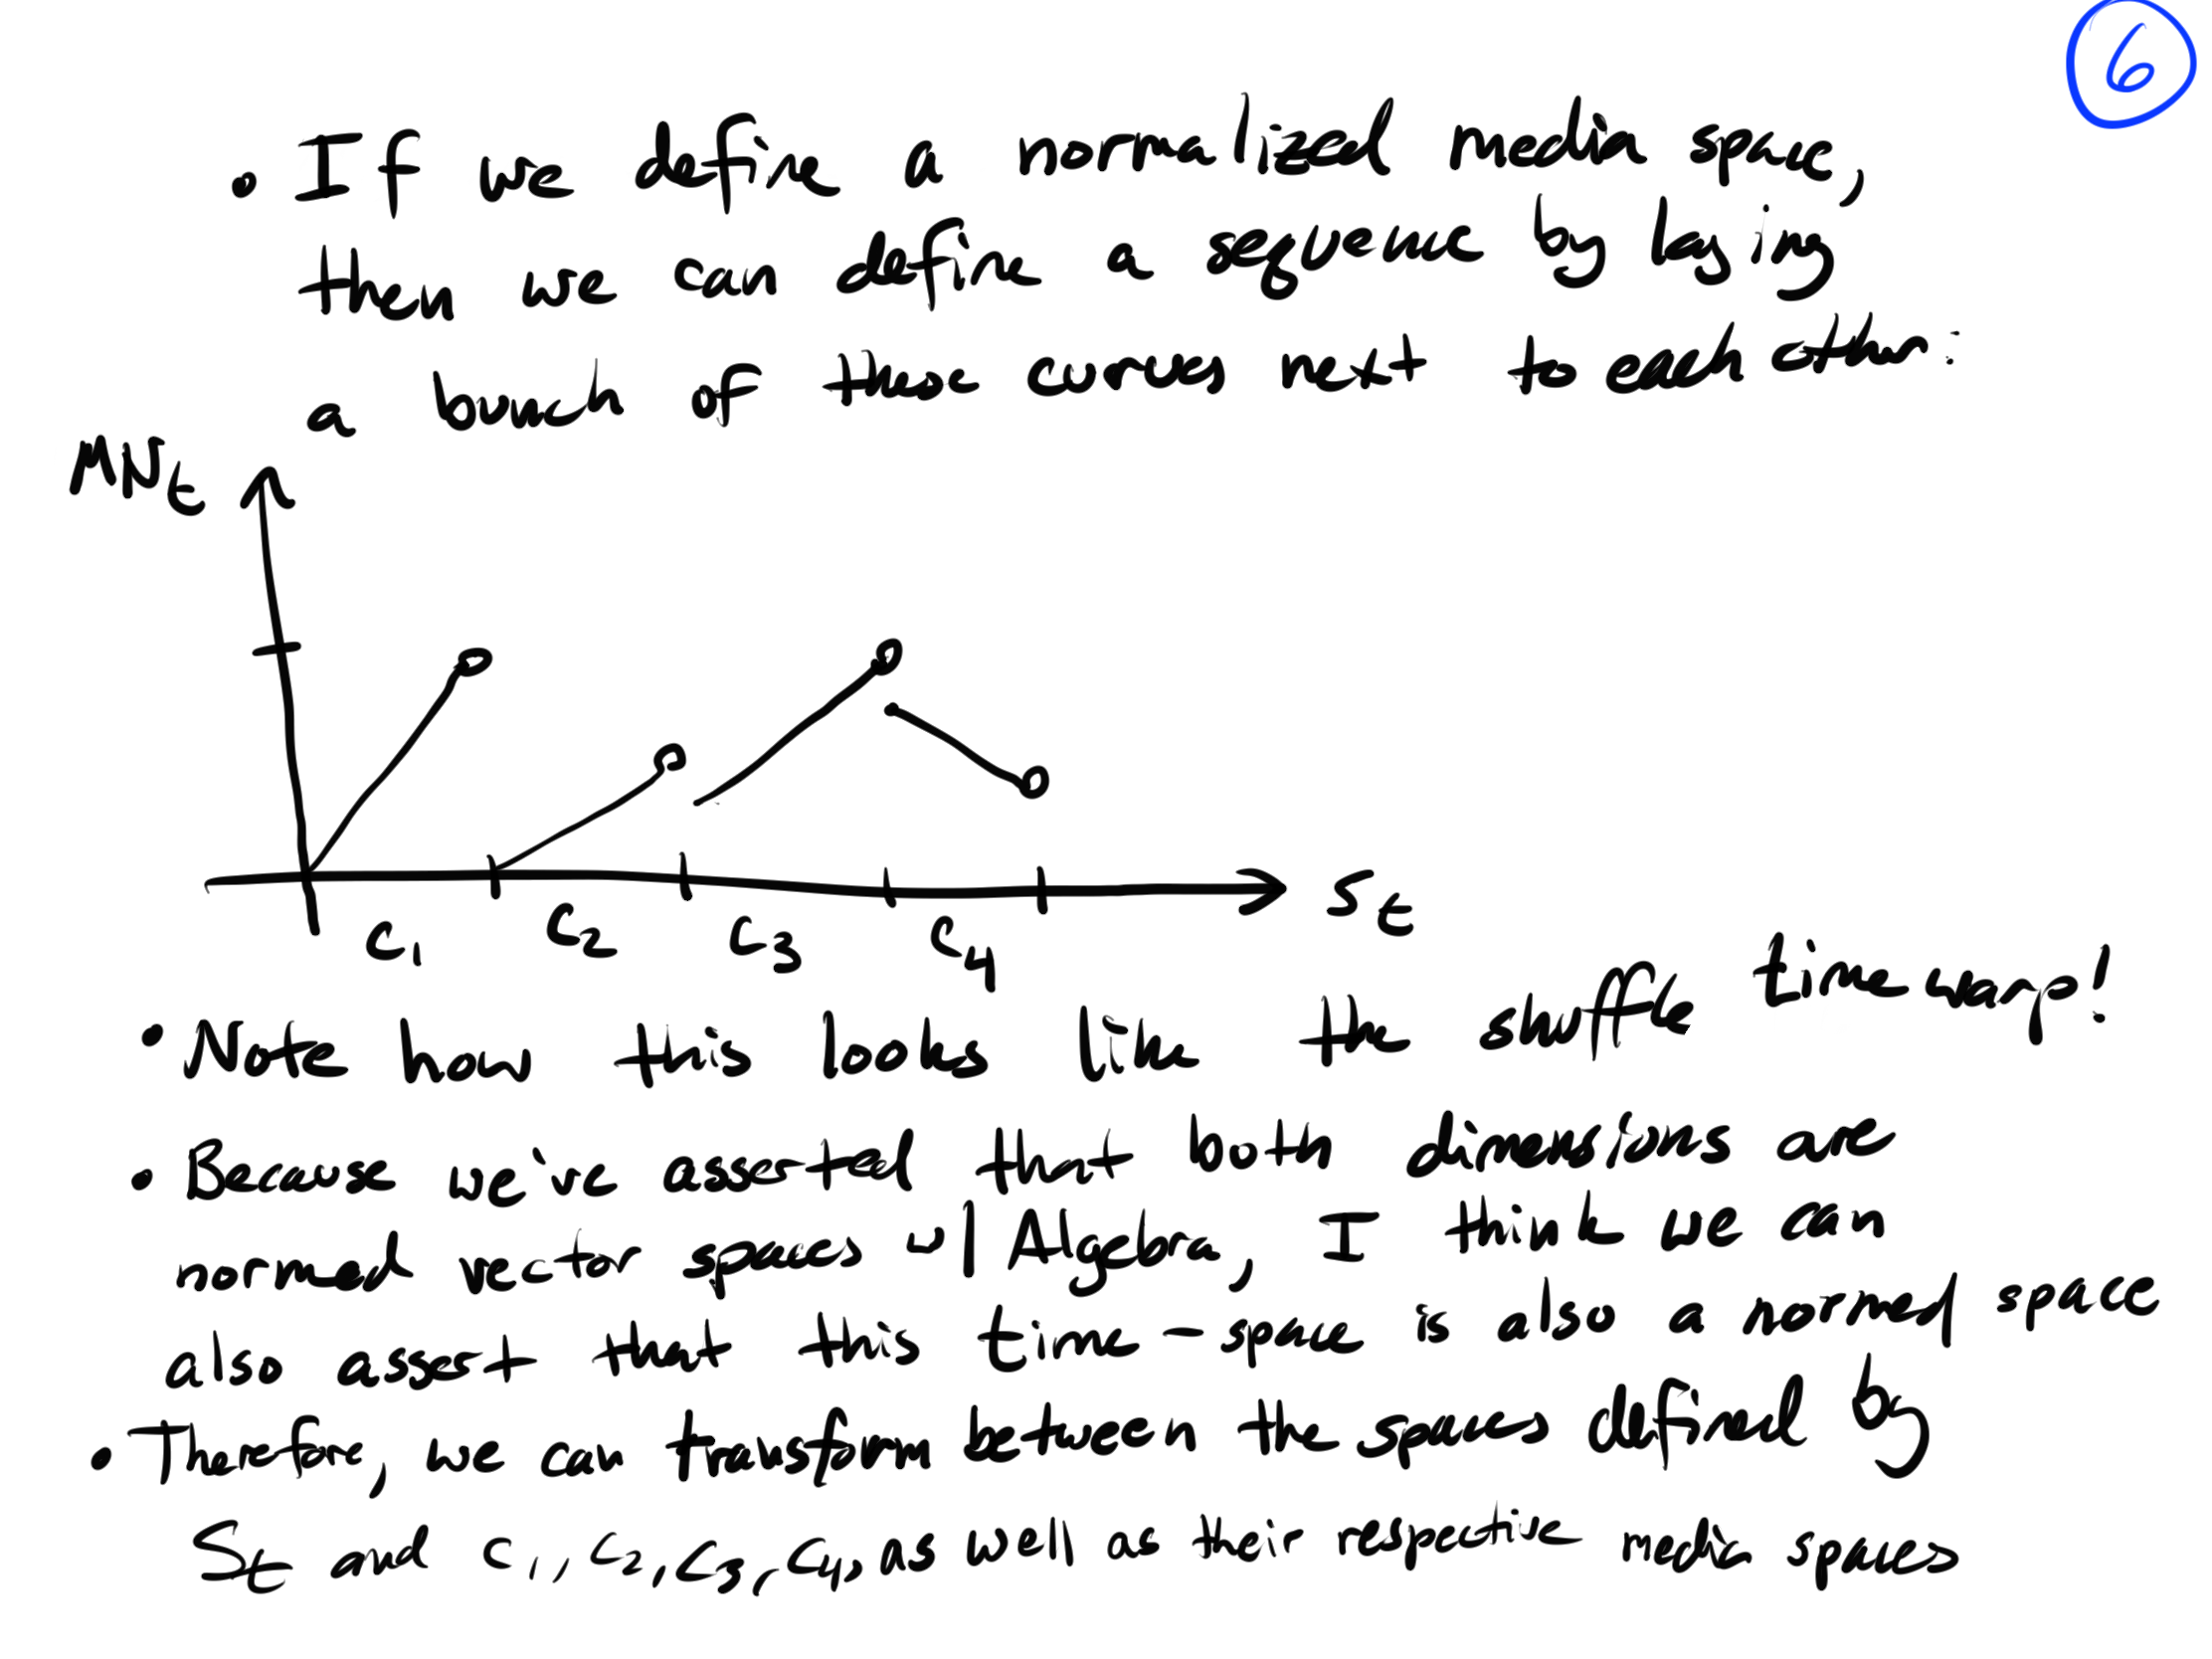 6
• If we define a normalized media space,
then we can define a sequence by laying
a bunch of these curves next to each other:
MNt
St
C1 C2 C3 C4
• Note how this looks like the shuffle time warp!
• Because we've asserted that both dimensions are
normed vector spaces w/ Algebra, I think we can
also assert that this time-space is also a normed space
• Therefore, we can transform between the spaces defined by
St and C1, C2, C3, C4, as well as their respective media spaces